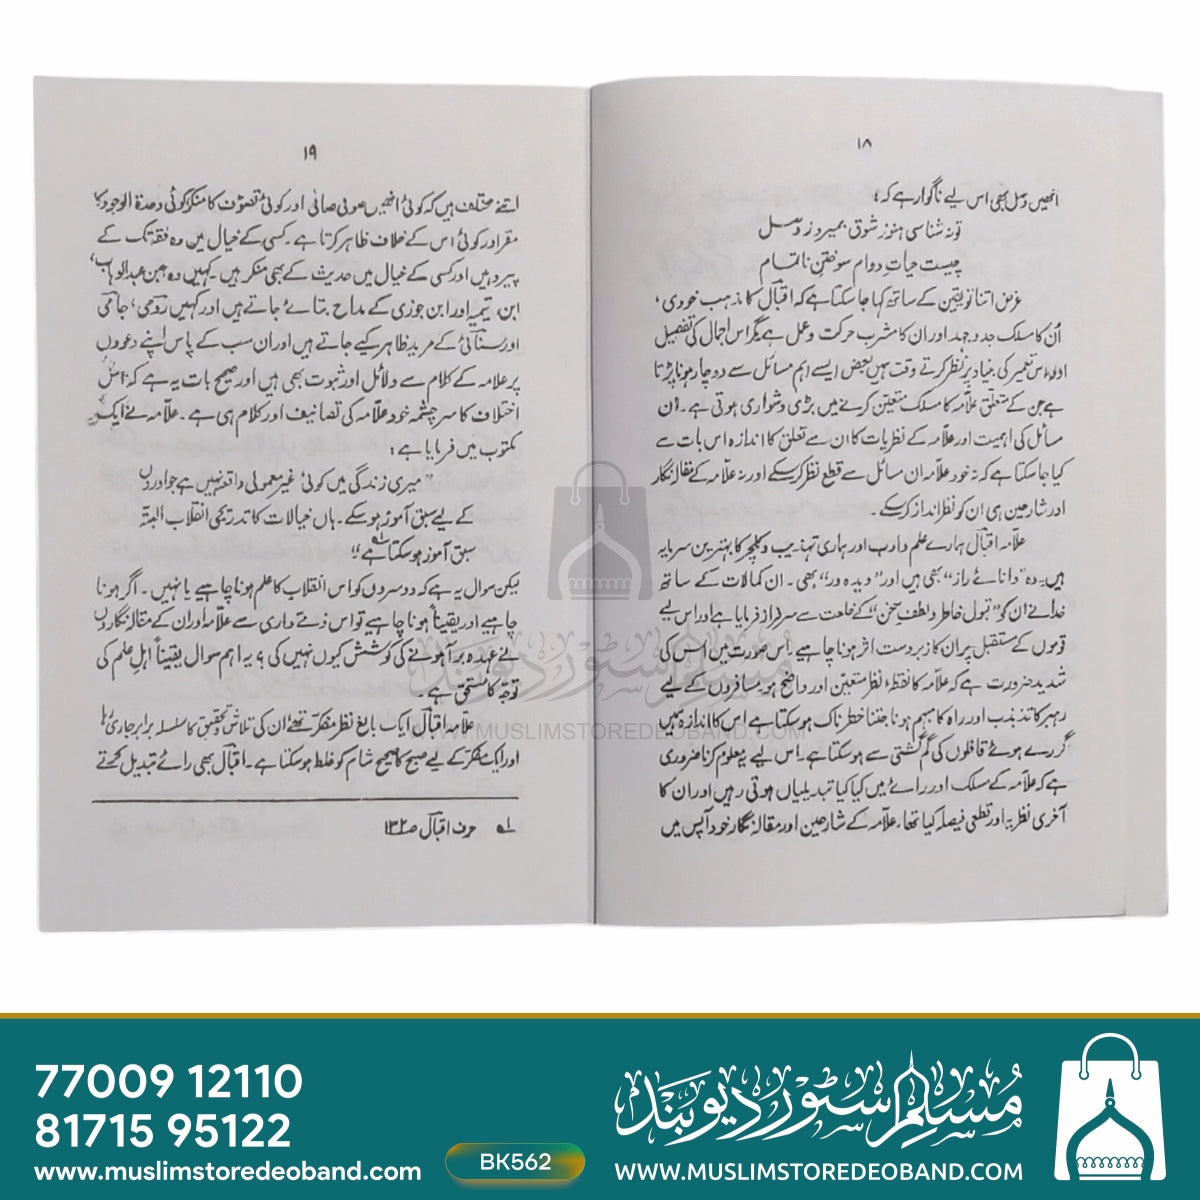 ۱۸
انھیں وصل بھی اس لیے ناگوار ہے کہ:
تو نہ شناسی ہنوز شوق بمیرد ز وصل
چیست حیاتِ دوام سوختنِ ناتمام
غرض اتنا تو یقین کے ساتھ کہا جا سکتا ہے کہ اقبالؔ کا مذہب خودی،
اُن کا مسلک جدوجہد اور ان کا مشرب حرکت و عمل ہے مگر اس اجمال کی تفصیل
اور اس تعمیر کی بنیاد پر نظر کرتے وقت ہمیں بعض ایسے اہم مسائل سے دوچار ہونا پڑتا
ہے جن کے متعلق علّامہ کا مسلک متعین کرنے میں بڑی دشواری ہوتی ہے۔ ان
مسائل کی اہمیت اور علّامہ کے نظریات کا ان سے تعلق کا اندازہ اس بات سے
کیا جا سکتا ہے کہ نہ خود علّامہ ان مسائل سے قطع نظر کر سکے اور نہ علّامہ کے مقالہ نگار
اور شارحین ہی ان کو نظر انداز کر سکے۔
علّامہ اقبالؔ ہمارے علم و ادب اور ہماری تہذیب و کلچر کا بہترین سرمایہ
ہیں۔ وہ "دانائے راز" بھی ہیں اور "دیدہ ور" بھی۔ ان کمالات کے ساتھ
خدا نے ان کو "قبول خاطر و لطف سخن" کے خلعت سے سرفراز فرمایا ہے اور اس لیے
قوموں کے مستقبل پر ان کا زبردست اثر ہونا چاہیے۔ اس صورت میں اس کی
شدید ضرورت ہے کہ علّامہ کا نقطۂ نظر متعین اور واضح ہو۔ مسافروں کے لیے
رہبر کا تذبذب اور راہ کا مبہم ہونا جتنا خطرناک ہو سکتا ہے اس کا اندازہ ہمیں
گزرے ہوئے قافلوں کی گم گشتی سے ہو سکتا ہے۔ اس لیے یہ معلوم کرنا ضروری
ہے کہ علّامہ کے مسلک اور رائے میں کیا کیا تبدیلیاں ہوتی رہیں اور ان کا
آخری نظریہ اور قطعی فیصلہ کیا تھا۔ علّامہ کے شارحین اور مقالہ نگار خود آپس میں
۱۹
اتنے مختلف ہیں کہ کوئی انھیں صوفی صافی اور کوئی تصوّف کا منکر، کوئی وحدۃ الوجود کا
مقر اور کوئی اس کے خلاف ظاہر کرتا ہے۔ کسی کے خیال میں وہ فقہ تک کے
پیرو ہیں اور کسی کے خیال میں حدیث کے بھی منکر ہیں۔ کہیں وہ محمد بن عبدالوہاب،
ابن تیمیہ اور ابن جوزی کے مداح بتائے جاتے ہیں اور کہیں رومی، جامی
اور سنائی کے مرید ظاہر کیے جاتے ہیں اور ان سب کے پاس اپنے دعووں
پر علامہ کے کلام سے دلائل اور ثبوت بھی ہیں اور صحیح بات یہ ہے کہ اس
اختلاف کا سرچشمہ خود علّامہ کی تصانیف اور کلام ہی ہے۔ علّامہ نے ایک
مکتوب میں فرمایا ہے:
"میری زندگی میں کوئی غیر معمولی واقعہ نہیں ہے جو اوروں
کے لیے سبق آموز ہو سکے۔ ہاں خیالات کا تدریجی انقلاب البتہ
سبق آموز ہو سکتا ہے"۱
لیکن سوال یہ ہے کہ دوسروں کو اس انقلاب کا علم ہونا چاہیے یا نہیں۔ اگر ہونا
چاہیے اور یقیناً ہونا چاہیے تو اس ذمے داری سے علّامہ اور ان کے مقالہ نگاروں
نے عہدہ برآ ہونے کی کوشش کیوں نہیں کی؟ یہ اہم سوال یقیناً اہلِ علم کی
توجہ کا مستحق ہے۔
علّامہ اقبالؔ ایک بالغ نظر مفکّر تھے، ان کی تلاش و تحقیق کا سلسلہ برابر جاری رہا
اور ایک مفکّر کے لیے صبح کا صحیح شام کو غلط ہو سکتا ہے۔ اقبالؔ بھی رائے تبدیل کرتے
۱ حرف اقبالؔ ص۱۳۲
مسلم سٹور دیوبند
WWW.MUSLIMSTOREDEOBAND.COM
77009 12110
81715 95122
www.muslimstoredeoband.com
BK562
مسلم سٹور دیوبند
WWW.MUSLIMSTOREDEOBAND.COM